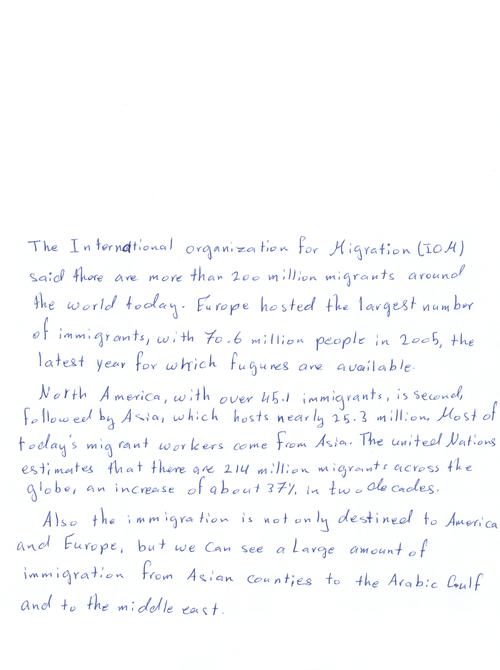 The International organization for Migration (IOM)
said there are more than 200 million migrants around
the world today. Europe hosted the largest number
of immigrants, with 70.6 million people in 2005, the
latest year for which fugures are available.
North America, with over 45.1 immigrants, is second,
followed by Asia, which hosts nearly 25.3 million. Most of
today's migrant workers come from Asia. The united Nations
estimates that there are 214 million migrants across the
globe, an increase of about 37% in two decades.
Also the immigration is not only destined to America
and Europe, but we can see a Large amount of
immigration from Asian counties to the Arabic Gulf
and to the middle east.